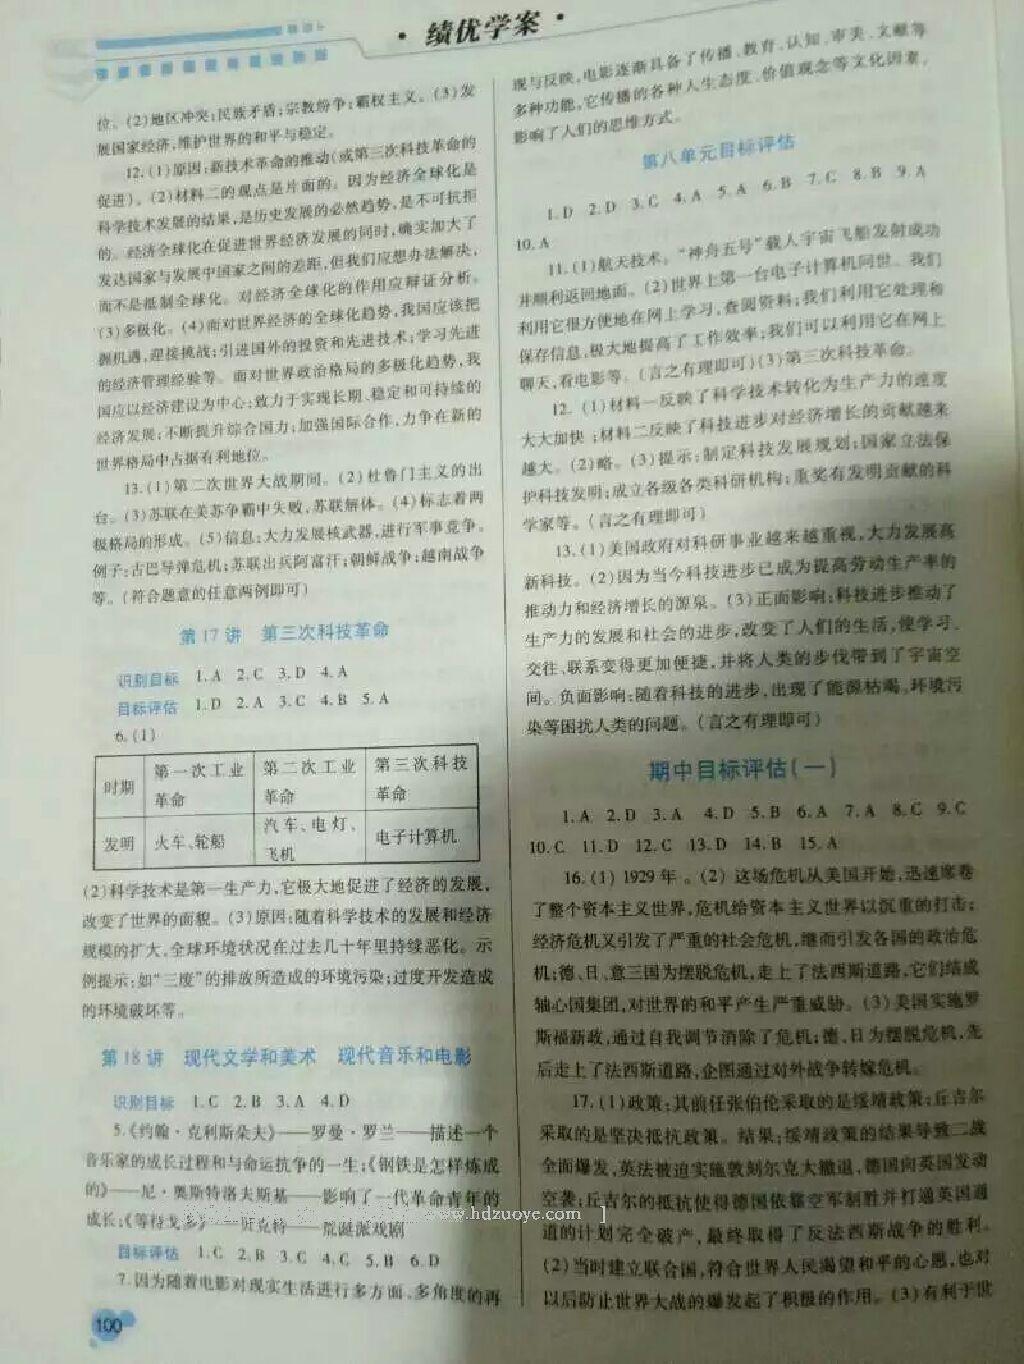 ·绩优学案·
位。(2)地区冲突;民族矛盾;宗教纷争;霸权主义。(3)发
展国家经济,维护世界的和平与稳定。
12.(1)原因:新技术革命的推动(或第三次科技革命的
促进)。(2)材料二的观点是片面的。因为经济全球化是
科学技术发展的结果,是历史发展的必然趋势,是不可抗拒
的。经济全球化在促进世界经济发展的同时,确实加大了
发达国家与发展中国家之间的差距,但我们应想办法解决,
而不是抵制全球化。对经济全球化的作用应辩证分析。
(3)多极化。(4)面对世界经济的全球化趋势,我国应该把
握机遇,迎接挑战;引进国外的投资和先进技术;学习先进
的经济管理经验等。面对世界政治格局的多极化趋势,我
国应以经济建设为中心;致力于实现长期、稳定和可持续的
经济发展;不断提升综合国力;加强国际合作,力争在新的
世界格局中占据有利地位。
13.(1)第二次世界大战期间。(2)杜鲁门主义的出
台。(3)苏联在美苏争霸中失败,苏联解体。(4)标志着两
极格局的形成。(5)信息:大力发展核武器,进行军事竞争。
例子:古巴导弹危机;苏联出兵阿富汗;朝鲜战争;越南战争
等。(符合题意的任意两例即可)
第17讲 第三次科技革命
识别目标 1.A 2.C 3.D 4.A
目标评估 1.D 2.A 3.C 4.B 5.A
6.(1)
时期 第一次工业革命 第二次工业革命 第三次科技革命
发明 火车、轮船 汽车、电灯、飞机 电子计算机
(2)科学技术是第一生产力,它极大地促进了经济的发展,
改变了世界的面貌。(3)原因:随着科学技术的发展和经济
规模的扩大,全球环境状况在过去几十年里持续恶化。示
例提示:如“三废”的排放所造成的环境污染;过度开发造成
的环境破坏等。
第18讲 现代文学和美术 现代音乐和电影
识别目标 1.C 2.B 3.A 4.D
5.《约翰·克利斯朵夫》——罗曼·罗兰——描述一个
音乐家的成长过程和与命运抗争的一生;《钢铁是怎样炼成
的》——尼·奥斯特洛夫斯基——影响了一代革命青年的
成长;《等待戈多》——贝克特——荒诞派戏剧
www.hdzuoye.com
目标评估 1.C 2.B 3.C 4.C 5.B 6.D
7.因为随着电影对现实生活进行多方面、多角度的再
100
现与反映,电影逐渐具备了传播、教育、认知、审美、文献等
多种功能,它传播的各种人生态度、价值观念等文化因素,
影响了人们的思维方式。
第八单元目标评估
1.D 2.D 3.C 4.A 5.A 6.B 7.C 8.B 9.A
10.A
11.(1)航天技术。“神舟五号”载人宇宙飞船发射成功
并顺利返回地面。(2)世界上第一台电子计算机问世。我们
利用它很方便地在网上学习,查阅资料;我们利用它处理和
保存信息,极大地提高了工作效率;我们可以利用它在网上
聊天,看电影等。(言之有理即可)(3)第三次科技革命。
12.(1)材料一反映了科学技术转化为生产力的速度
大大加快;材料二反映了科技进步对经济增长的贡献越来
越大。(2)略。(3)提示:制定科技发展规划;国家立法保
护科技发明;成立各级各类科研机构;重奖有发明贡献的科
学家等。(言之有理即可)
13.(1)美国政府对科研事业越来越重视,大力发展高
新科技。(2)因为当今科技进步已成为提高劳动生产率的
推动力和经济增长的源泉。(3)正面影响:科技进步推动了
生产力的发展和社会的进步,改变了人们的生活,使学习、
交往、联系变得更加便捷,并将人类的步伐带到了宇宙空
间。负面影响:随着科技的进步,出现了能源枯竭,环境污
染等困扰人类的问题。(言之有理即可)
期中目标评估(一)
1.A 2.D 3.A 4.D 5.B 6.A 7.A 8.C 9.C
10.C 11.D 12.C 13.D 14.B 15.A
16.(1)1929年。(2)这场危机从美国开始,迅速席卷
了整个资本主义世界,危机给资本主义世界以沉重的打击;
经济危机又引发了严重的社会危机,继而引发各国的政治危
机;德、日、意三国为摆脱危机,走上了法西斯道路,它们结成
轴心国集团,对世界的和平产生严重威胁。(3)美国实施罗
斯福新政,通过自我调节消除了危机;德、日为摆脱危机,先
后走上了法西斯道路,企图通过对外战争转嫁危机。
17.(1)政策:其前任张伯伦采取的是绥靖政策;丘吉尔
采取的是坚决抵抗政策。结果:绥靖政策的结果导致二战
全面爆发,英法被迫实施敦刻尔克大撤退,德国向英国发动
空袭;丘吉尔的抵抗使得德国依靠空军制胜并打通英国通
道的计划完全破产,最终取得了反法西斯战争的胜利。
(2)当时建立联合国,符合世界人民渴望和平的心愿,也对
以后防止世界大战的爆发起了积极的作用。(3)有利于世